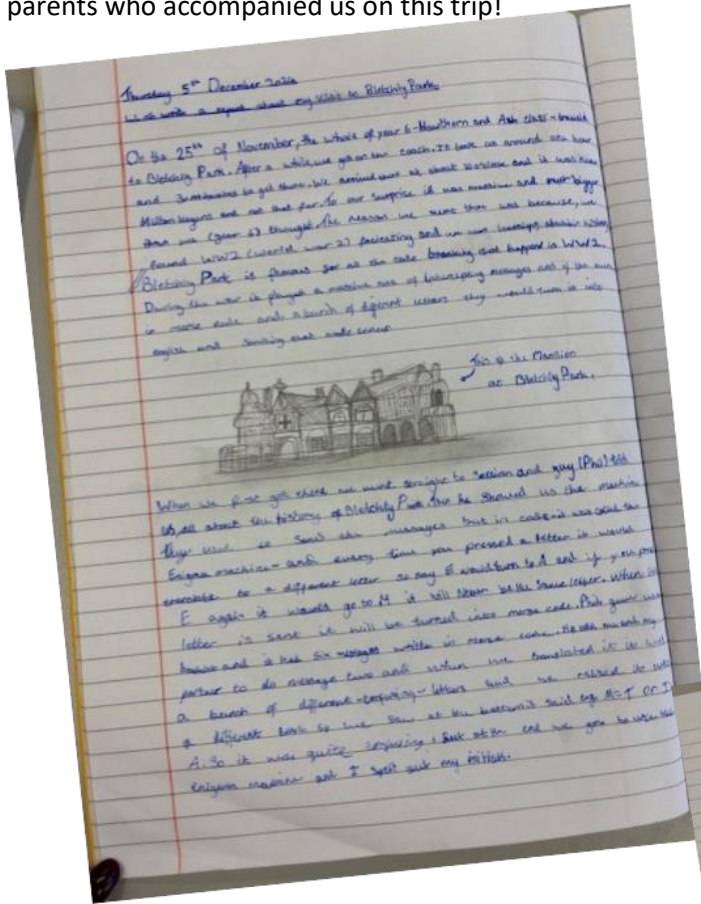 parents who accompanied us on this trip!
Thursday 5th December 2024
write a report about my visit to Bletchly Park.
On the 25th of November, the whole of year 6 - Hawthorn and Ash class -
to Bletchly Park. After a while, we got on the coach. It took us around one hour
and minutes to get there. We arrived there at about and it was near
Milton keynes and not that far. To our surprise it was massive and much bigger
than we (year 6) thought. The reason we went there was because, we
found WW2 (world war 2) and we were learning about in history.
Bletchly Park is famous for all the code breaking that happend in WW2.
During the war it played a massive role of intercepting messages and if the
in morse code and a bunch of diferent letters they would turn it into
english and somthing that made sence
This is the Mansion
at Bletchly Park.
When we first got there we went straight to session and guy (Phil) told
us, all about the history of Bletchly Park. then he showed us the machine
they used to send the messages but in code - it was called the
Enigma machine - and every time you pressed a letter it would
translate to a different letter so say E would turn to A and if you press
E again it would go to M it will never be the same letter. When the
letter is sent it will be turned into morse code. Phil gave us a
and it had six messages written in morse code. He told me and my
partner to do message two and when we translated it it was
a bunch of different - confusing - letters and we it
a different so we saw at the bottom it said eg M=T or I=
A. So it was quite confusing, but at the end we got to use the
enigma machine and I spelt out my initials.